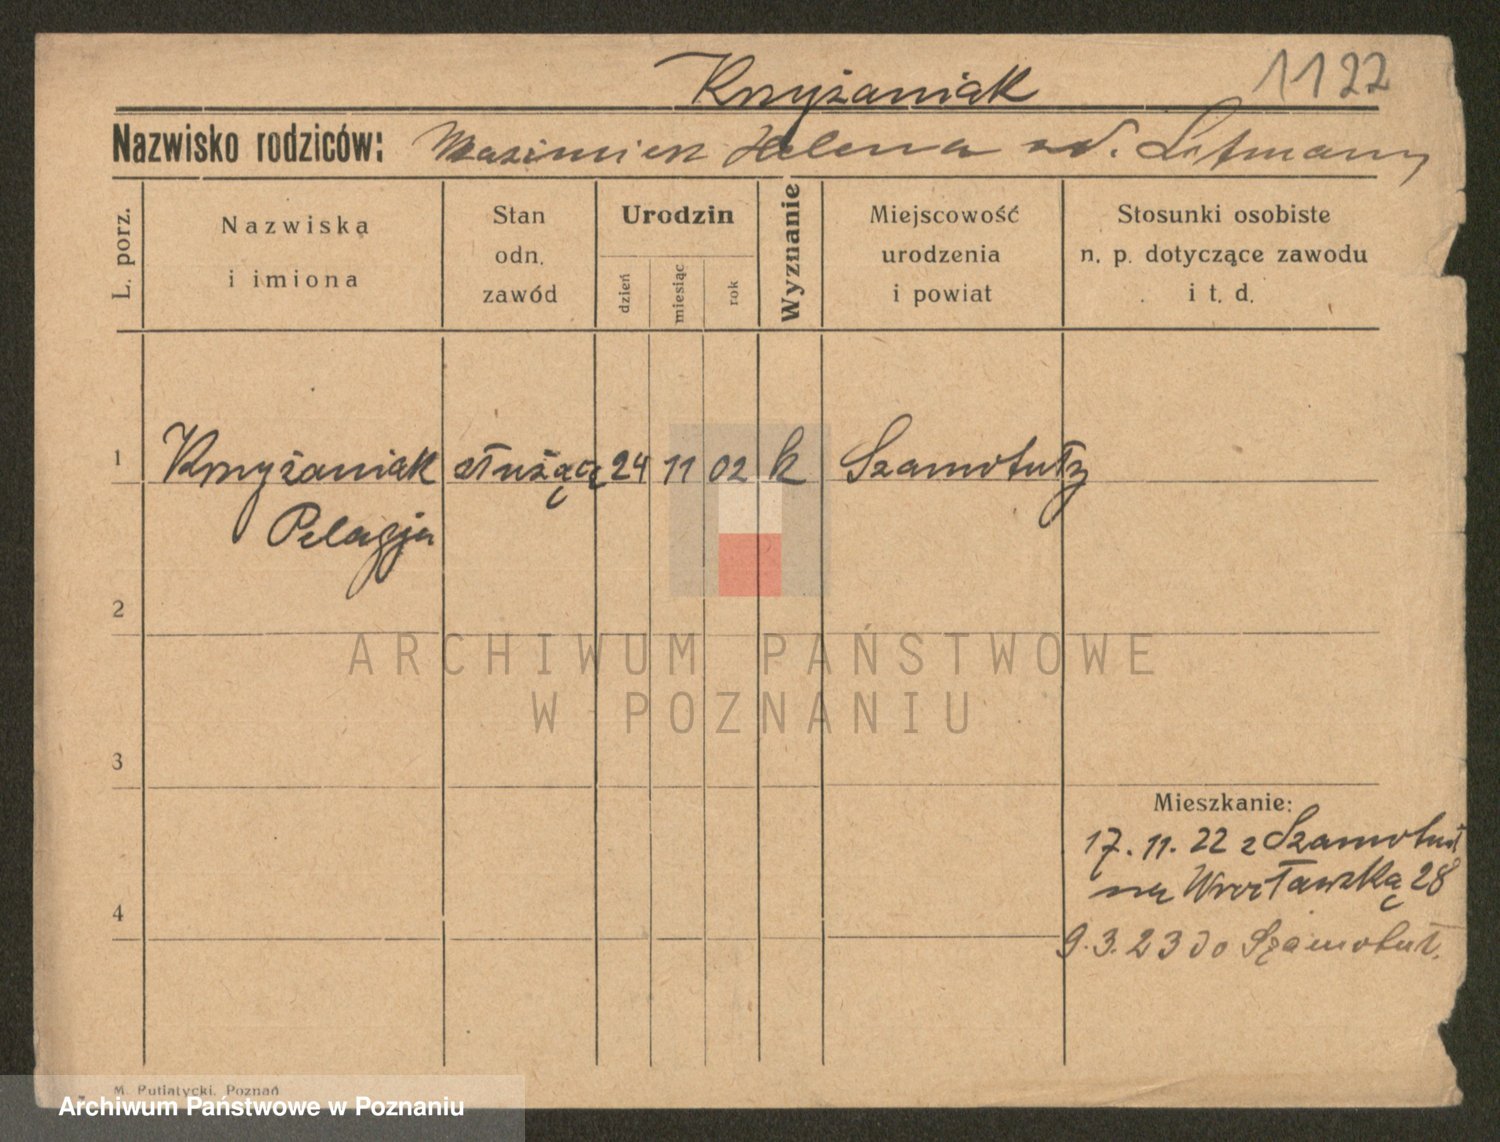 Krzyżaniak 1122
Nazwisko rodziców: Kazimierz Helena Litmann
L. porz.
Nazwiska
i imiona
Stan
odn.
zawód
Urodzin
dzień
miesiąc
rok
Wyznanie
Miejscowość
urodzenia
i powiat
Stosunki osobiste
n. p. dotyczące zawodu
i t. d.
1 Krzyżaniak służąca 24 11 02 k Szamotuły
Pelagja
2
3
4
Mieszkanie:
17.11.22 z Szamotuł
na Wrocławską 28
9.3.23 do Szamotuł.
M. Putiatycki, Poznań
ARCHIWUM PAŃSTWOWE
W POZNANIU
Archiwum Państwowe w Poznaniu